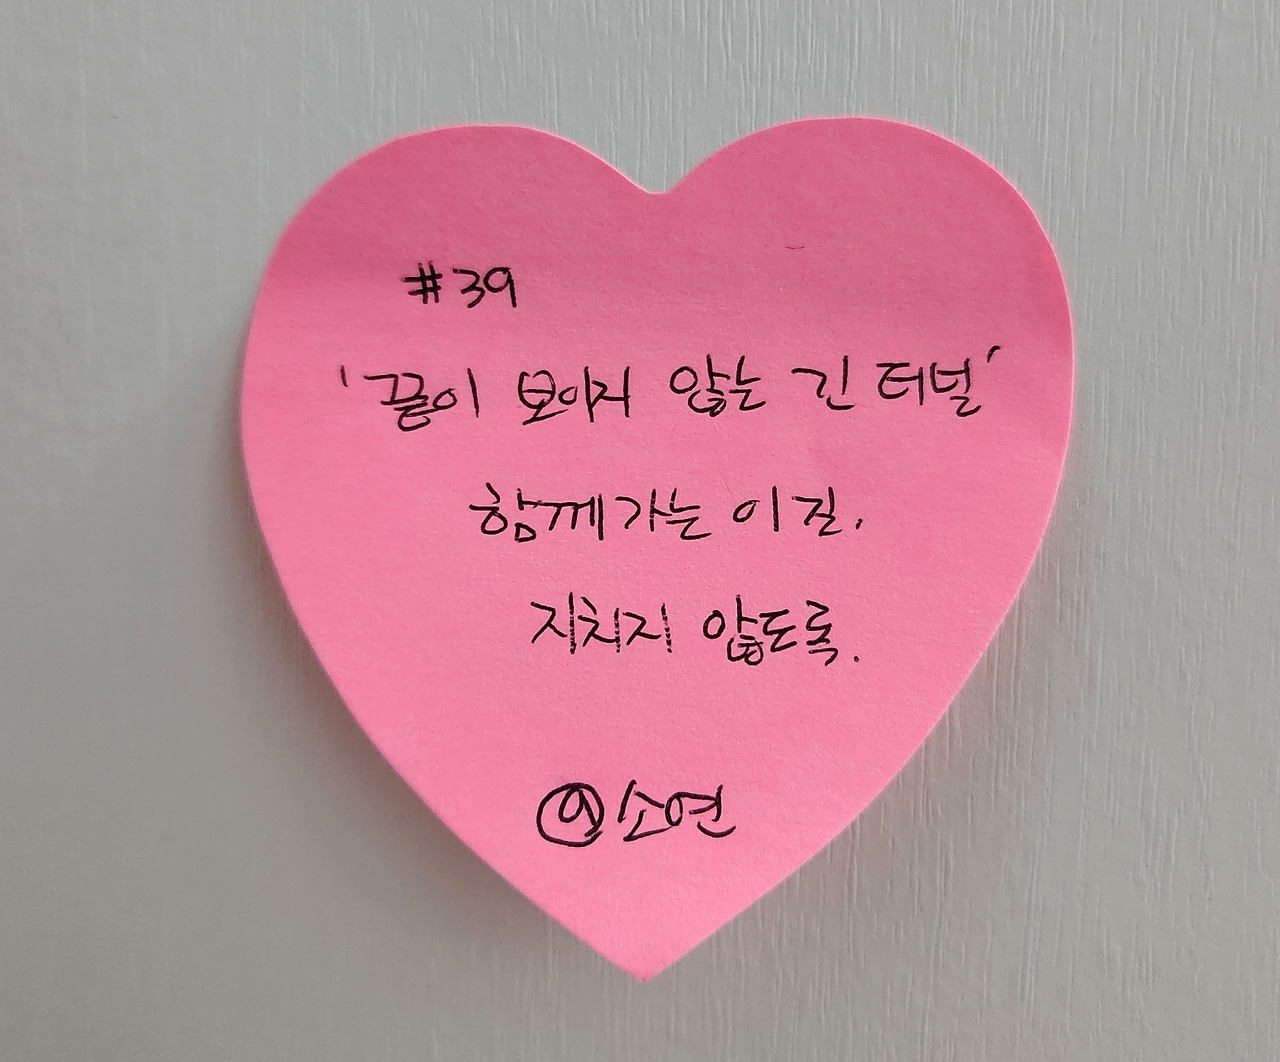 #39
'끝이 보이지 않는 긴 터널'
함께 가는 이 길.
지치지 않도록.
@소연